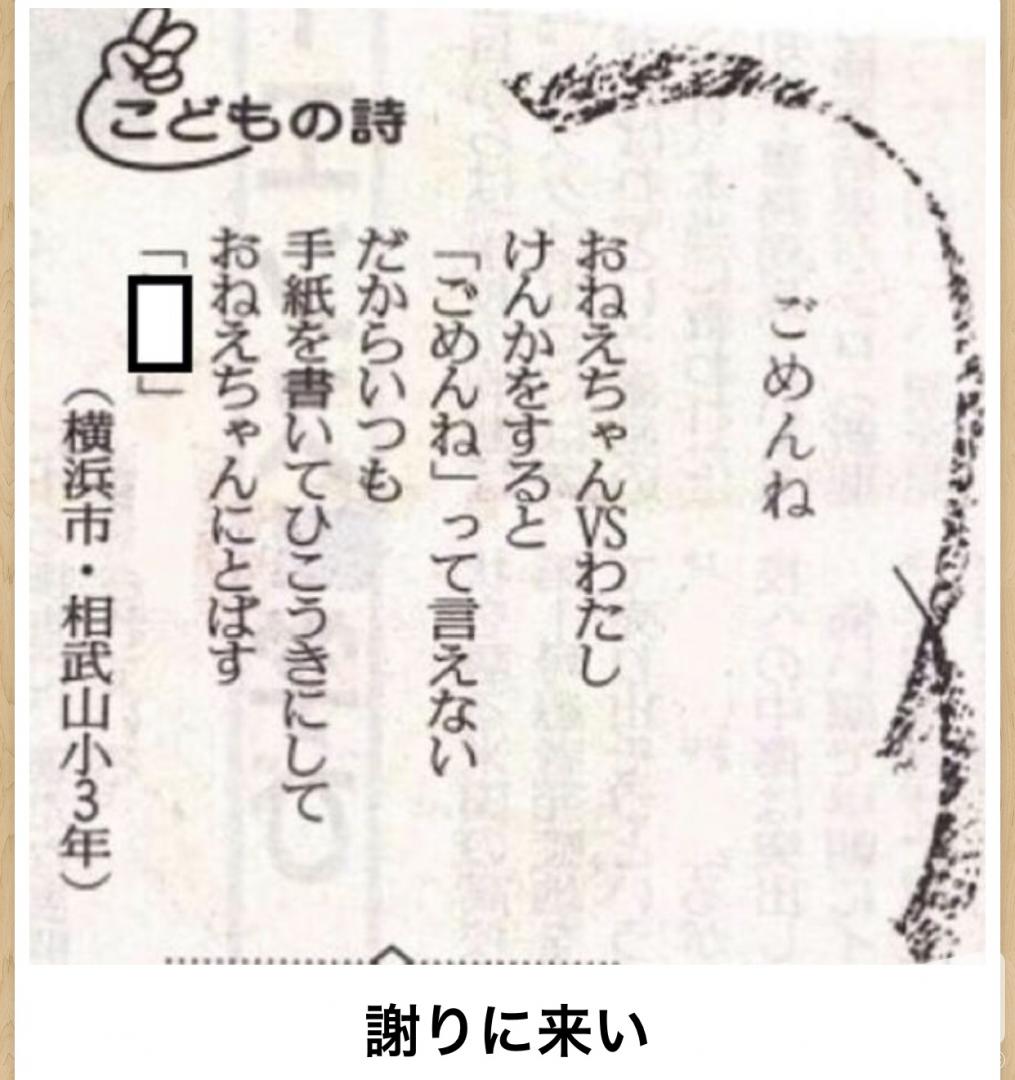 こどもの詩
ごめんね
おねえちゃんVSわたし
けんかをすると
「ごめんね」って言えない
だからいつも
手紙を書いてひこうきにして
おねえちゃんにとばす
「 」
（横浜市・相武山小3年）
謝りに来い